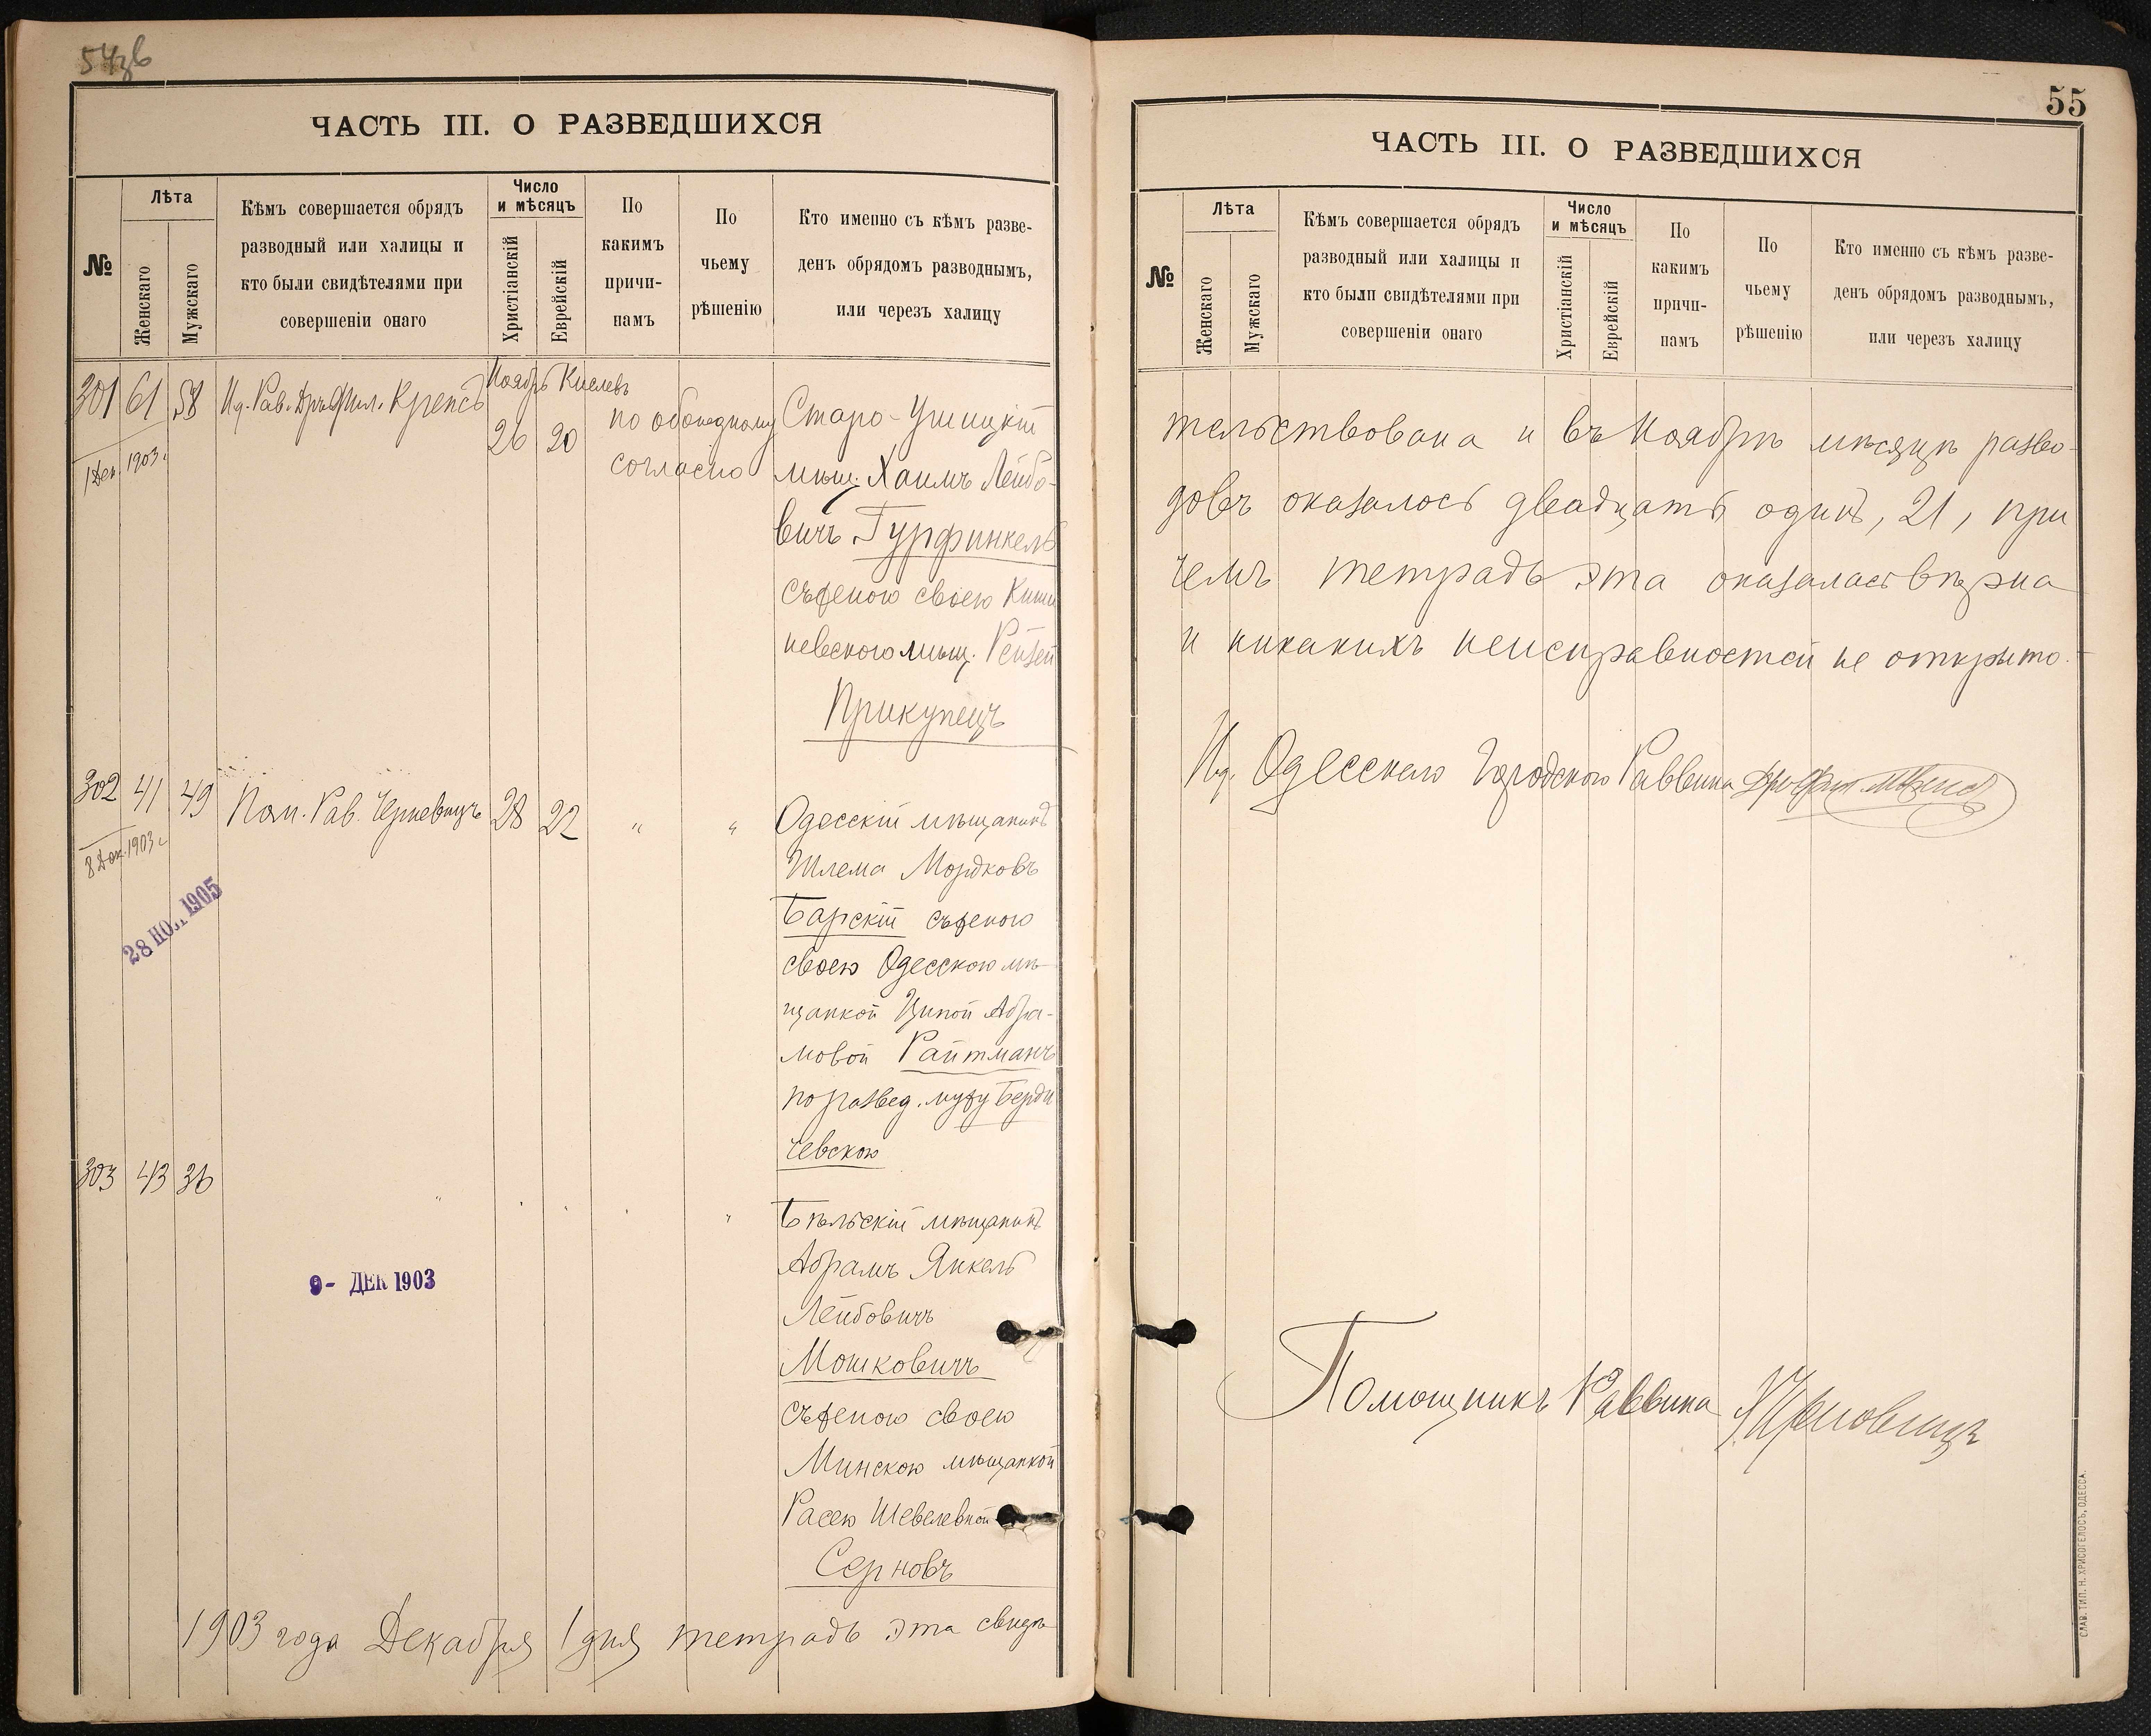 54об
ЧАСТЬ III. О РАЗВЕДШИХСЯ
№
Лѣта
Женскаго
Мужскаго
Кѣмъ совершается обрядъ
разводный или халицы и
кто были свидѣтелями при
совершеніи онаго
Число
и мѣсяцъ
Христіанскій
Еврейскій
По
какимъ
причи-
намъ
По
чьему
рѣшенію
Кто именно съ кѣмъ разве-
денъ обрядомъ разводнымъ,
или черезъ халицу
301 61 58 И.д. Рав. Дръ Фил. Крепсъ
Ноябрь Кислевъ
26 20
по обоюдному
согласію
1 Дек. 1903 г.
Старо-Ушицкій
мѣщ. Хаимъ Лейбо-
вичъ Гурфинкель
съ женою своею Киши
невскою мѣщ. Рейзей
Прикупецъ
302 41 49 Пом. Рав. Черновицъ 28 22 " "
8 Дек. 1903 г.
28 НОЯ 1905
Одесскій мѣщанинъ
Шлема Мордковъ
Барскій съ женою
своею Одесскою мѣ-
щанкой Ципой Абра-
мовой Райтманъ
по развед. мужу Берди
чевскою
303 43 36 " " " " "
9 - ДЕК 1903
Бѣльскій мѣщанинъ
Абрамъ Янкель
Лейбовичъ
Мошковичъ
съ женою своею
Минскою мѣщанкой
Расею Шевелевной
Серновъ
1903 года Декабря 1 дня тетрадь эта свидѣ
55
ЧАСТЬ III. О РАЗВЕДШИХСЯ
№
Лѣта
Женскаго
Мужскаго
Кѣмъ совершается обрядъ
разводный или халицы и
кто были свидѣтелями при
совершеніи онаго
Число
и мѣсяцъ
Христіанскій
Еврейскій
По
какимъ
причи-
намъ
По
чьему
рѣшенію
Кто именно съ кѣмъ разве-
денъ обрядомъ разводнымъ,
или черезъ халицу
тельствована и въ Ноябрѣ мѣсяцѣ разво-
довъ оказалось двадцать одинъ, 21, при
чемъ тетрадь эта оказалась вѣрна
и никакихъ неисправностей не открыто.
И.д. Одесскаго Городского Раввина Дръ Фил. Крепсъ
Помощникъ Раввина Черновицъ
СЛАВ. ТИП. Н. ХРИСОГЕЛОСЪ, ОДЕССА.